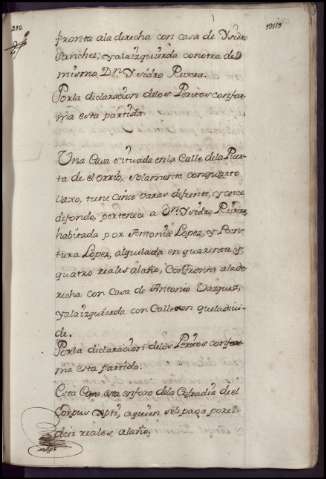 fronta ala derecha con casa de Ysidro
Sanchez, y ala izquierda con otra del
mismo Dn. Ysidro Perez.
Por la declaracion delos Peritos confor-
ma esta partida.
Una Casa situada en la Calle dela Puer-
ta de el                solamente con quarto
vaxo, tiene cinco varas de frente, y
de fondo, pertenece a Dn. Ysidro Perez,
habitada por Antonio Lopez, y Bena-
tura Lopez, alquilada en quarenta y
quatro reales al año, Confronta ala de-
recha con Casa de Antonio Vazquez,
y ala izquierda con Callexon que la divi-
de.
Por la declaracion delos Peritos confor-
ma esta partida.
Esta Casa            dela Cofradia del
Corpus Xpti, a quien se le paga por el
       reales al año,